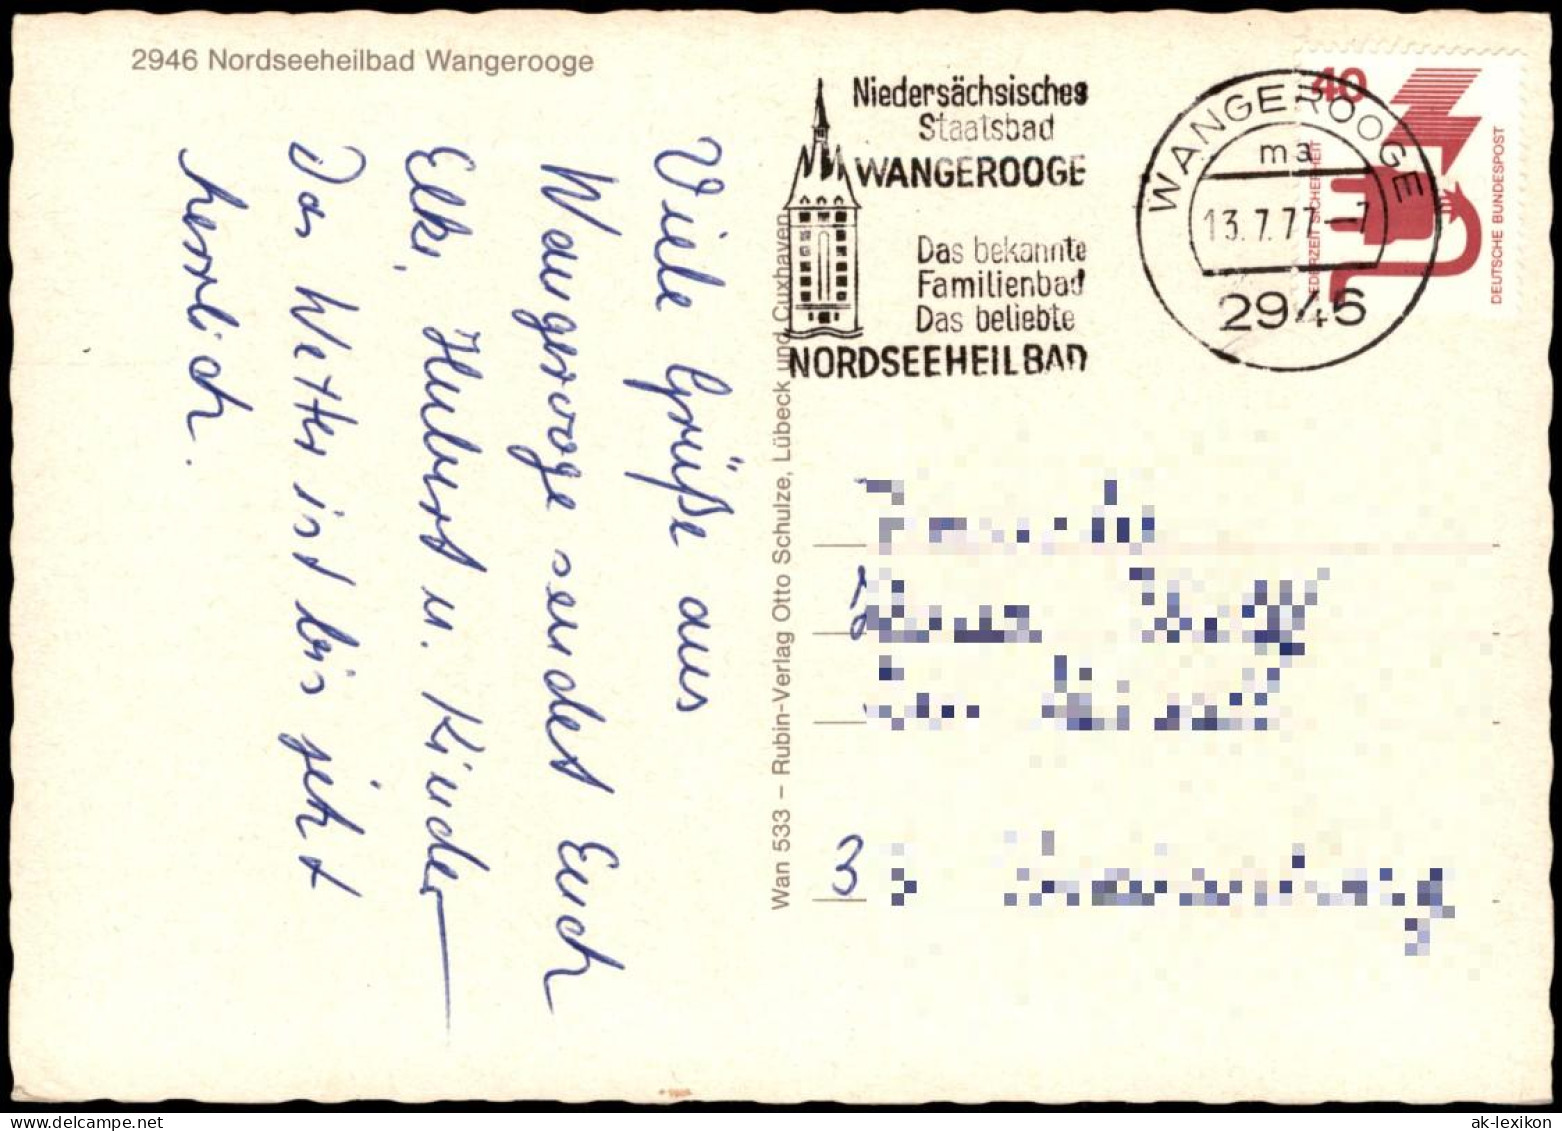 2946 Nordseeheilbad Wangerooge
Viele Grüße aus
Wangerooge sendet Euch
Elke, Hubert u. Kinder
Das Wetter ist bis jetzt
herrlich.
Wan 533 – Rubin-Verlag Otto Schulze, Lübeck und Cuxhaven
Niedersächsisches
Staatsbad
WANGEROOGE
Das bekannte
Familienbad
Das beliebte
NORDSEEHEILBAD
WANGEROOGE
ma
13.7.77-7
2946
40
JEDERZEIT SICHERHEIT
DEUTSCHE BUNDESPOST
3
ak-lexikon